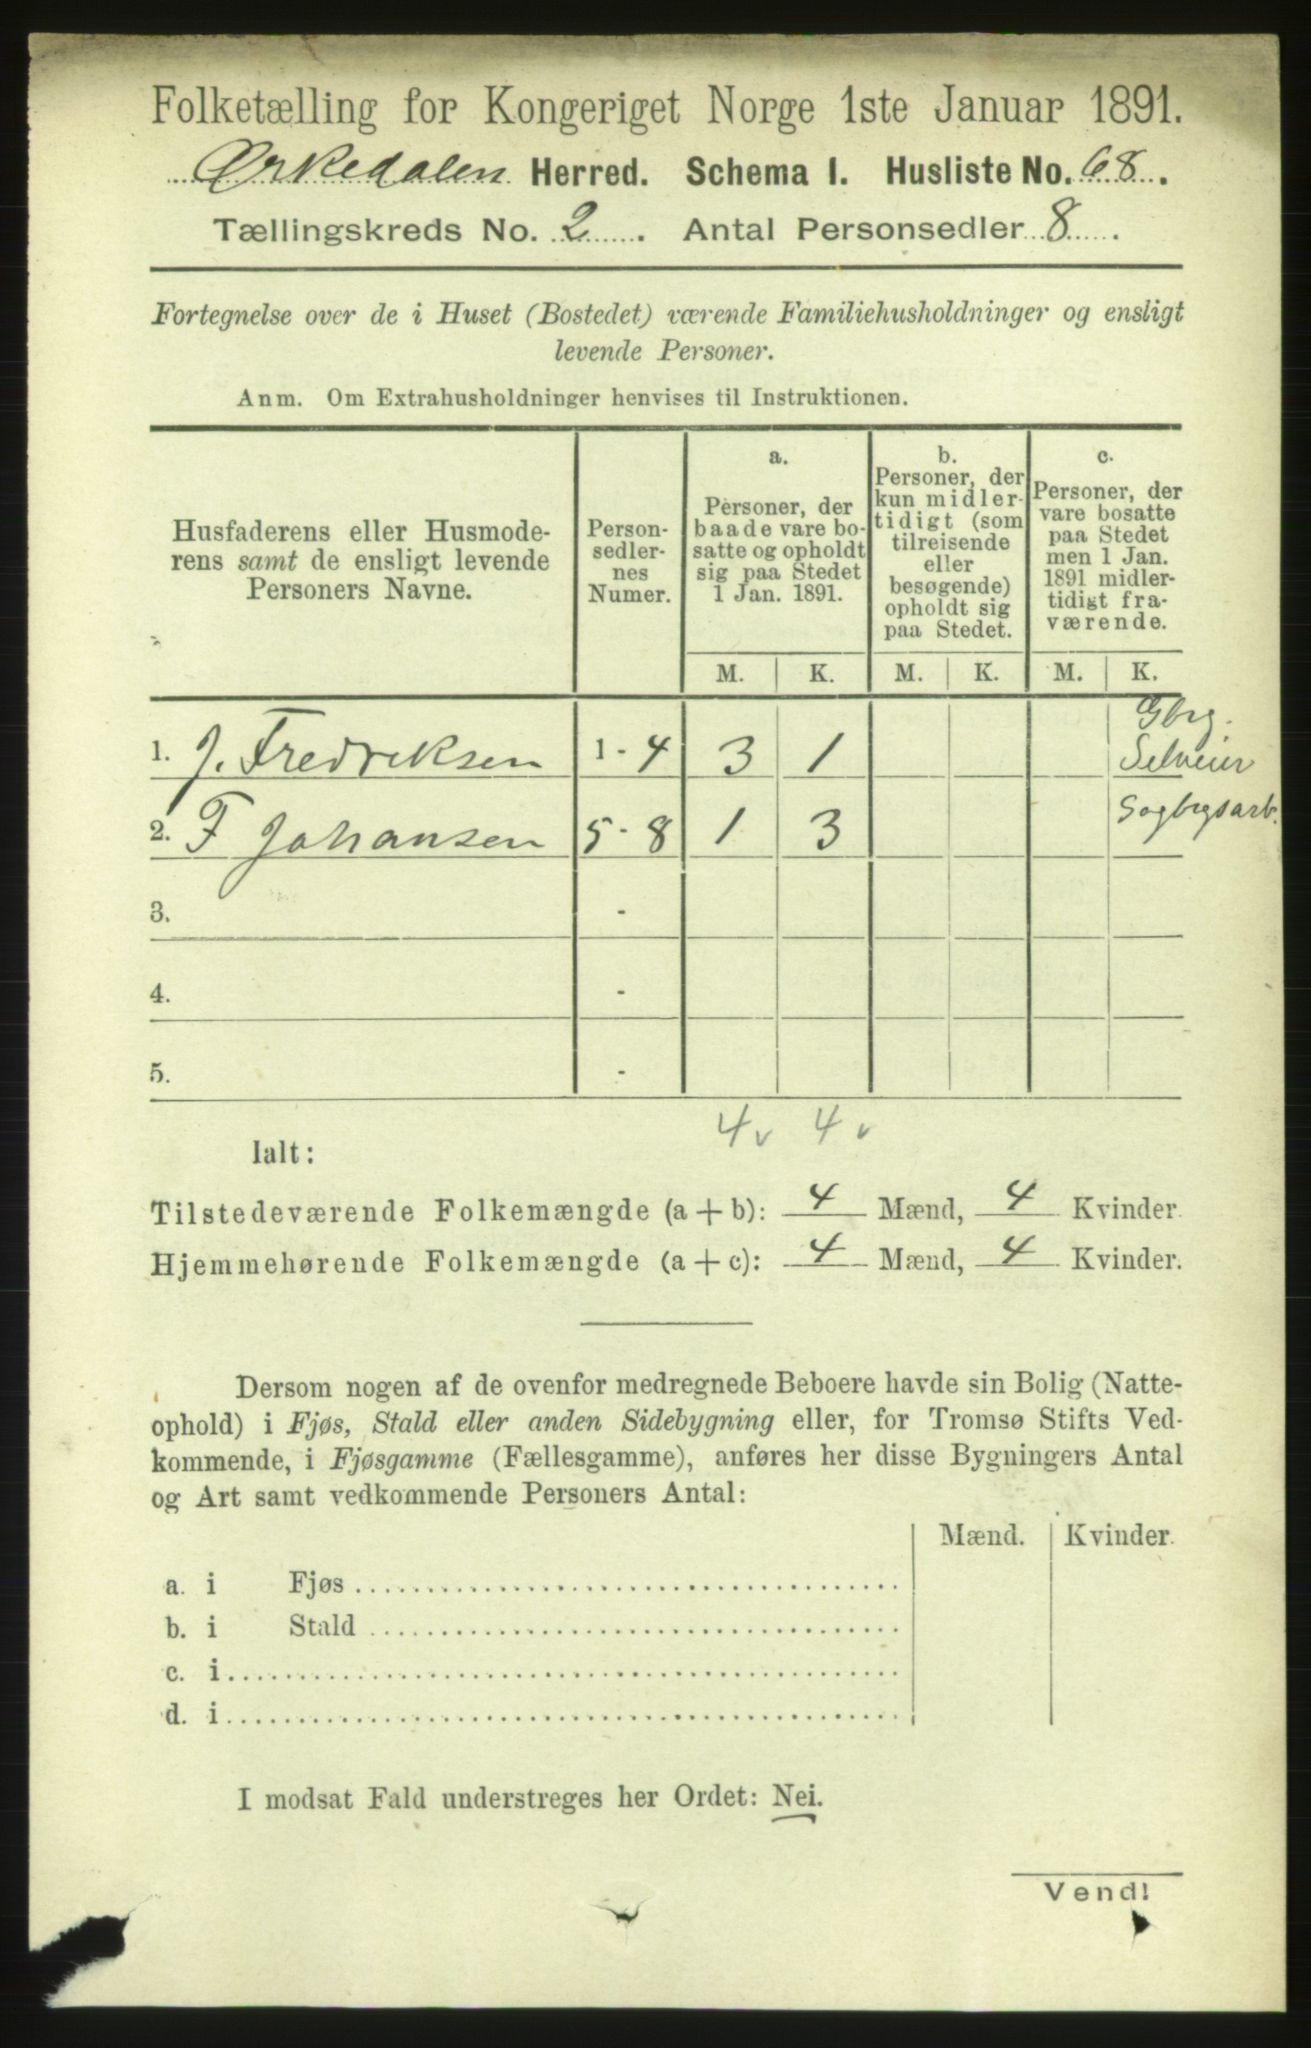 Folketælling for Kongeriget Norge 1ste Januar 1891.
Ørkedalen Herred. Schema I. Husliste No. 68.
Tællingskreds No. 2. Antal Personsedler 8.
Fortegnelse over de i Huset (Bostedet) værende Familiehusholdninger og ensligt
levende Personer.
Anm. Om Extrahusholdninger henvises til Instruktionen.
Husfaderens eller Husmode-
rens samt de ensligt levende
Personers Navne.
Person-
sedler-
nes
Numer.
a.
Personer, der
baade vare bo-
satte og opholdt
sig paa Stedet
1 Jan. 1891.
b.
Personer, der
kun midler-
tidigt (som
tilreisende
eller
besøgende)
opholdt sig
paa Stedet.
c.
Personer, der
vare bosatte
paa Stedet
men 1 Jan.
1891 midler-
tidigt fra-
værende.
M. K. M. K. M. K.
Gbrg.
1. J. Fredriksen 1 - 4 3 1 Selveier
2. F Johansen 5 - 8 1 3 Sagbrgsarb.
3. -
4. -
5. -
4 v 4 v
Ialt:
Tilstedeværende Folkemængde (a + b): 4 Mænd, 4 Kvinder.
Hjemmehørende Folkemængde (a + c): 4 Mænd, 4 Kvinder.
Dersom nogen af de ovenfor medregnede Beboere havde sin Bolig (Natte-
ophold) i Fjøs, Stald eller anden Sidebygning eller, for Tromsø Stifts Ved-
kommende, i Fjøsgamme (Fællesgamme), anføres her disse Bygningers Antal
og Art samt vedkommende Personers Antal:
Mænd. Kvinder.
a. i Fjøs
b. i Stald
c. i
d. i
I modsat Fald understreges her Ordet: Nei.
Vend!